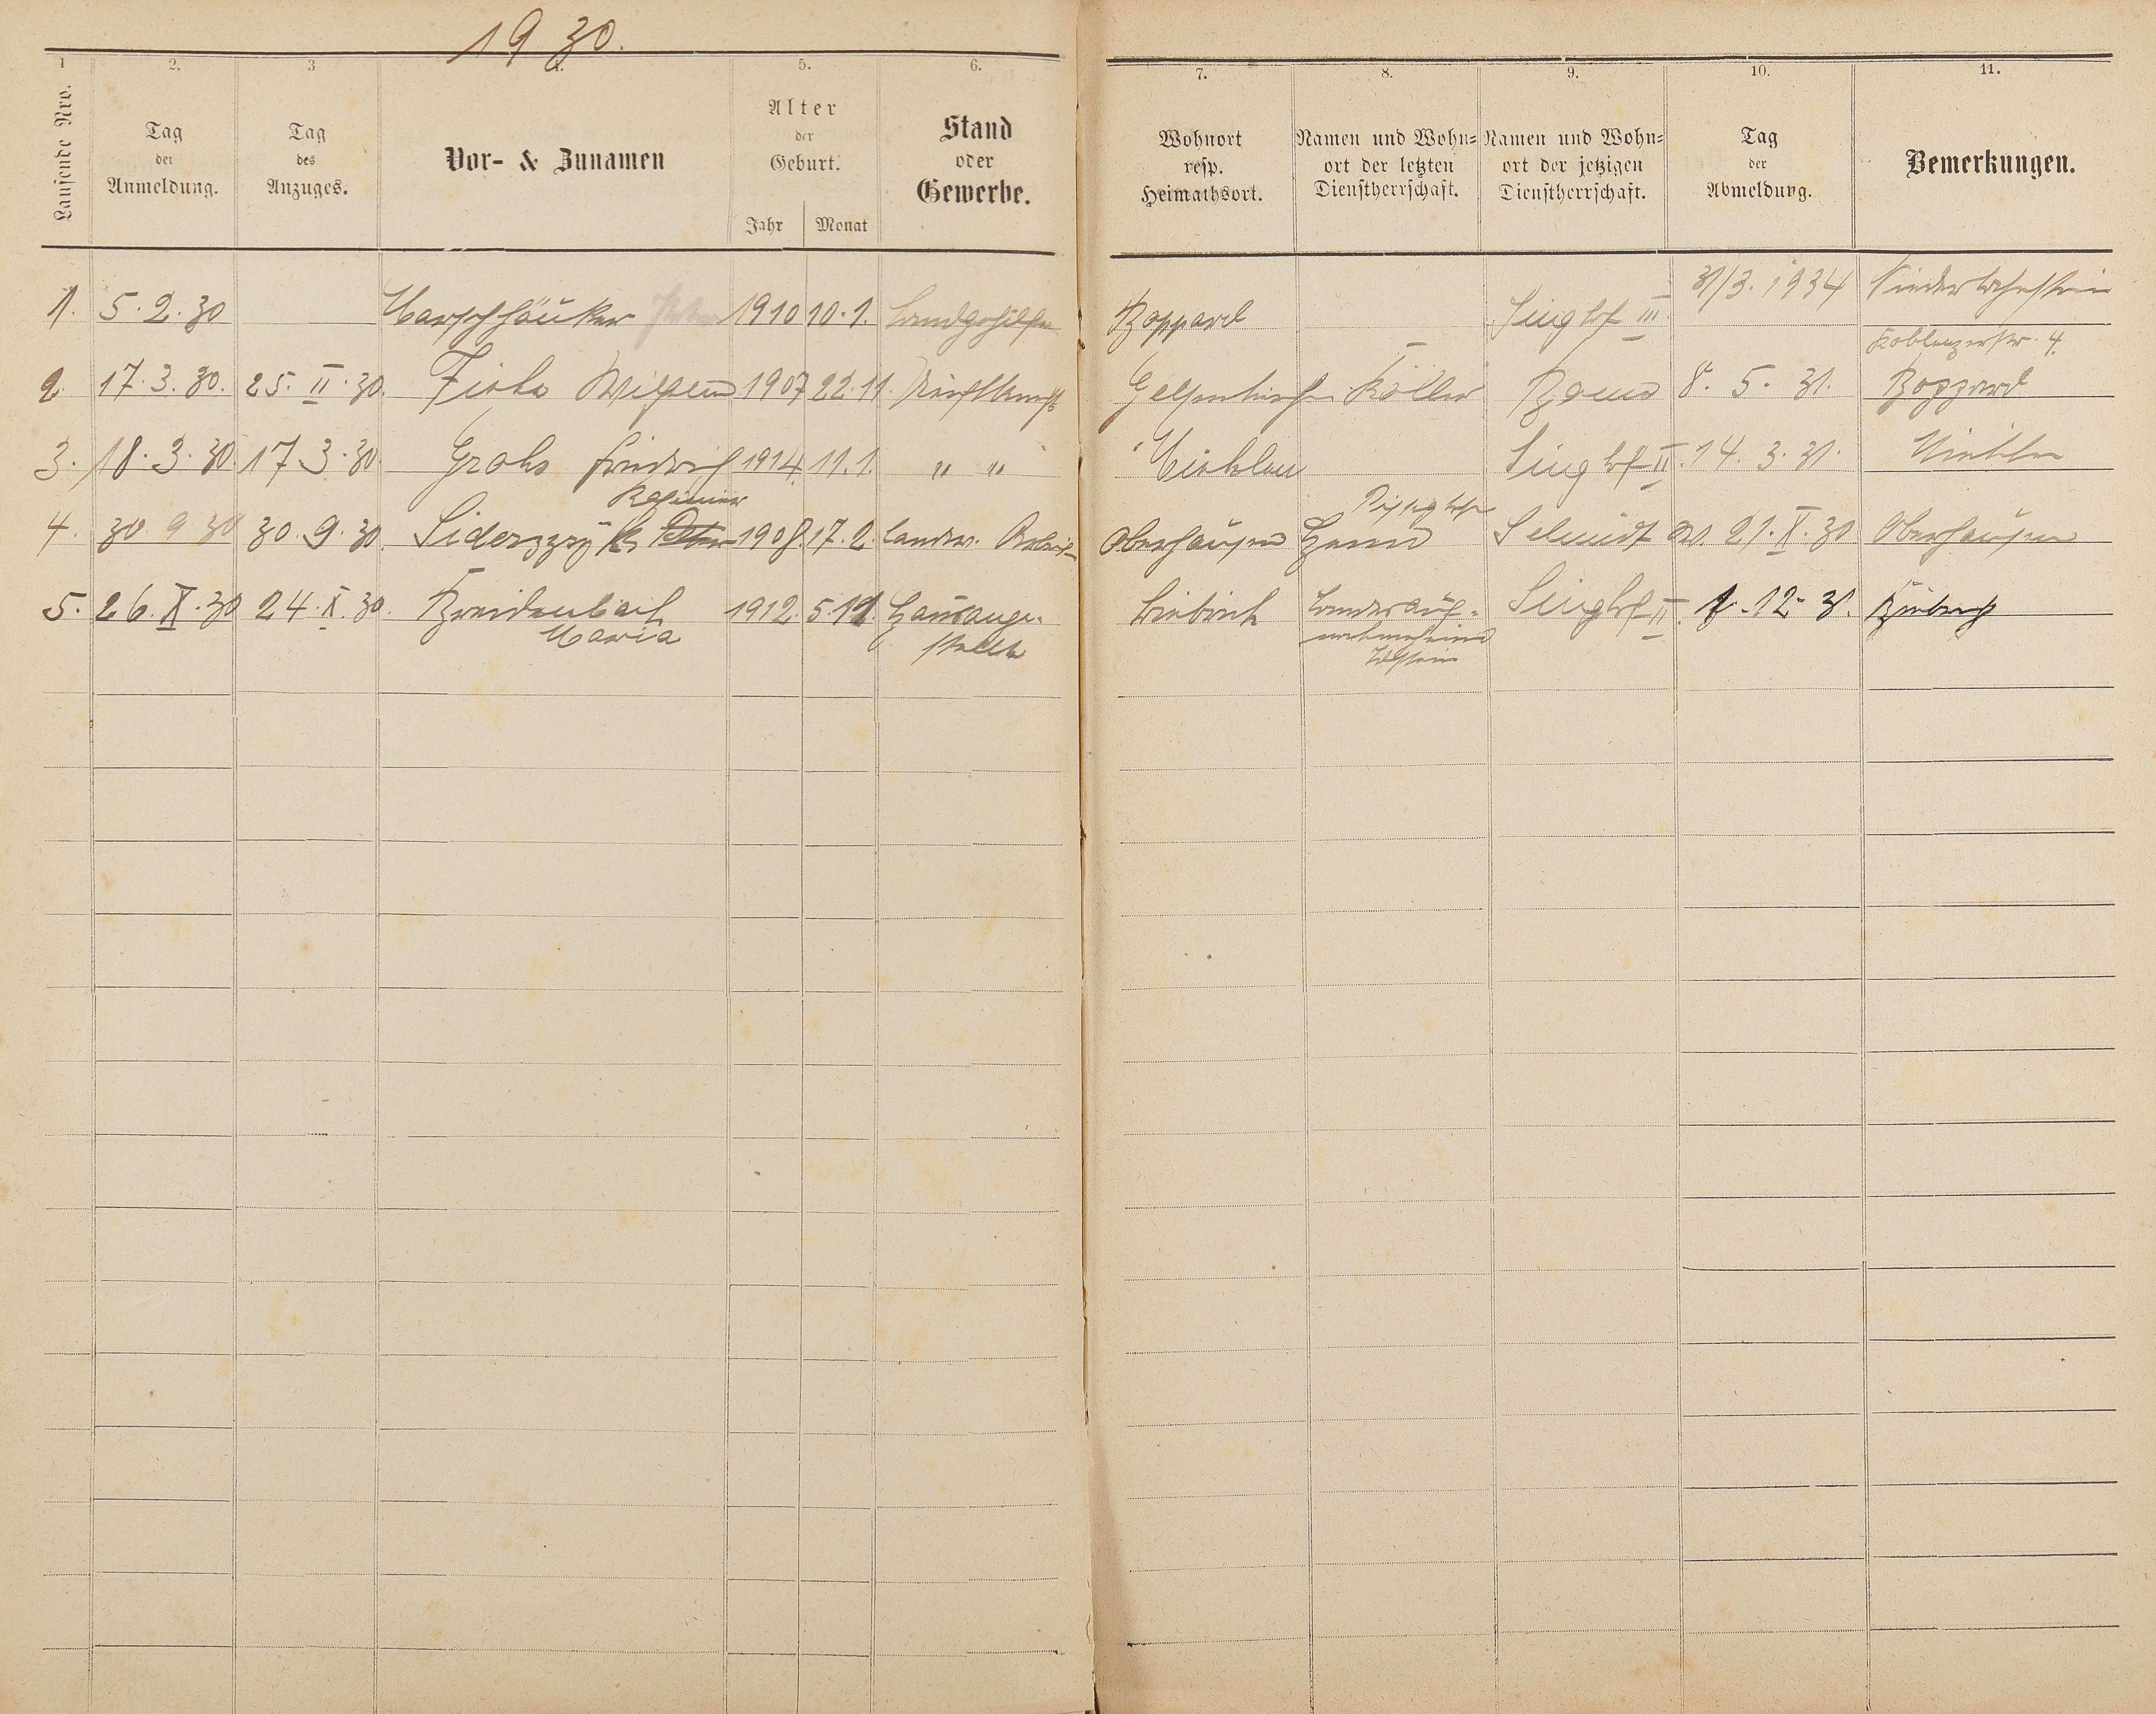 1930.
1
2.
3
4.
5.
6.
7.
8.
9.
10.
11.
Laufende Nro.
Tag
der
Anmeldung.
Tag
des
Anzuges.
Vor- & Zunamen
Alter
der
Geburt.
Jahr
Monat
Stand
oder
Gewerbe.
Wohnort
resp.
Heimathsort.
Namen und Wohn-
ort der letzten
Dienstherrschaft.
Namen und Wohn-
ort der jetzigen
Dienstherrschaft.
Tag
der
Abmeldung.
Bemerkungen.
1. 5.2.30 Marschhäuser 1910 10.1. Landgehilfe Boppard Singhof III. 31/3. 1934 Niederlahnstein
Koblenzerstr. 4.
2. 17.3.30. 25.II.30. 1907 22.11. Gelsenkirchen Köller 8.5.31. Boppard
3. 18.3.30. 17.3.30 Grohs Friedrich 1914. 11.1. " " Singhof II. 14.3.31.
4. 30.9.30 30.9.30. 1908. 17.2. landw. Arbeiter Oberhausen Schmidt W. 21.X.30 Oberhausen
5. 26.X.30 24.X.30. Breidenbach 1912. 5.11. Hausange-
Maria stellte
Biebrich Landesauf-
nahmeheim
Idstein
Singhof II. 1.12.31. Biebrich